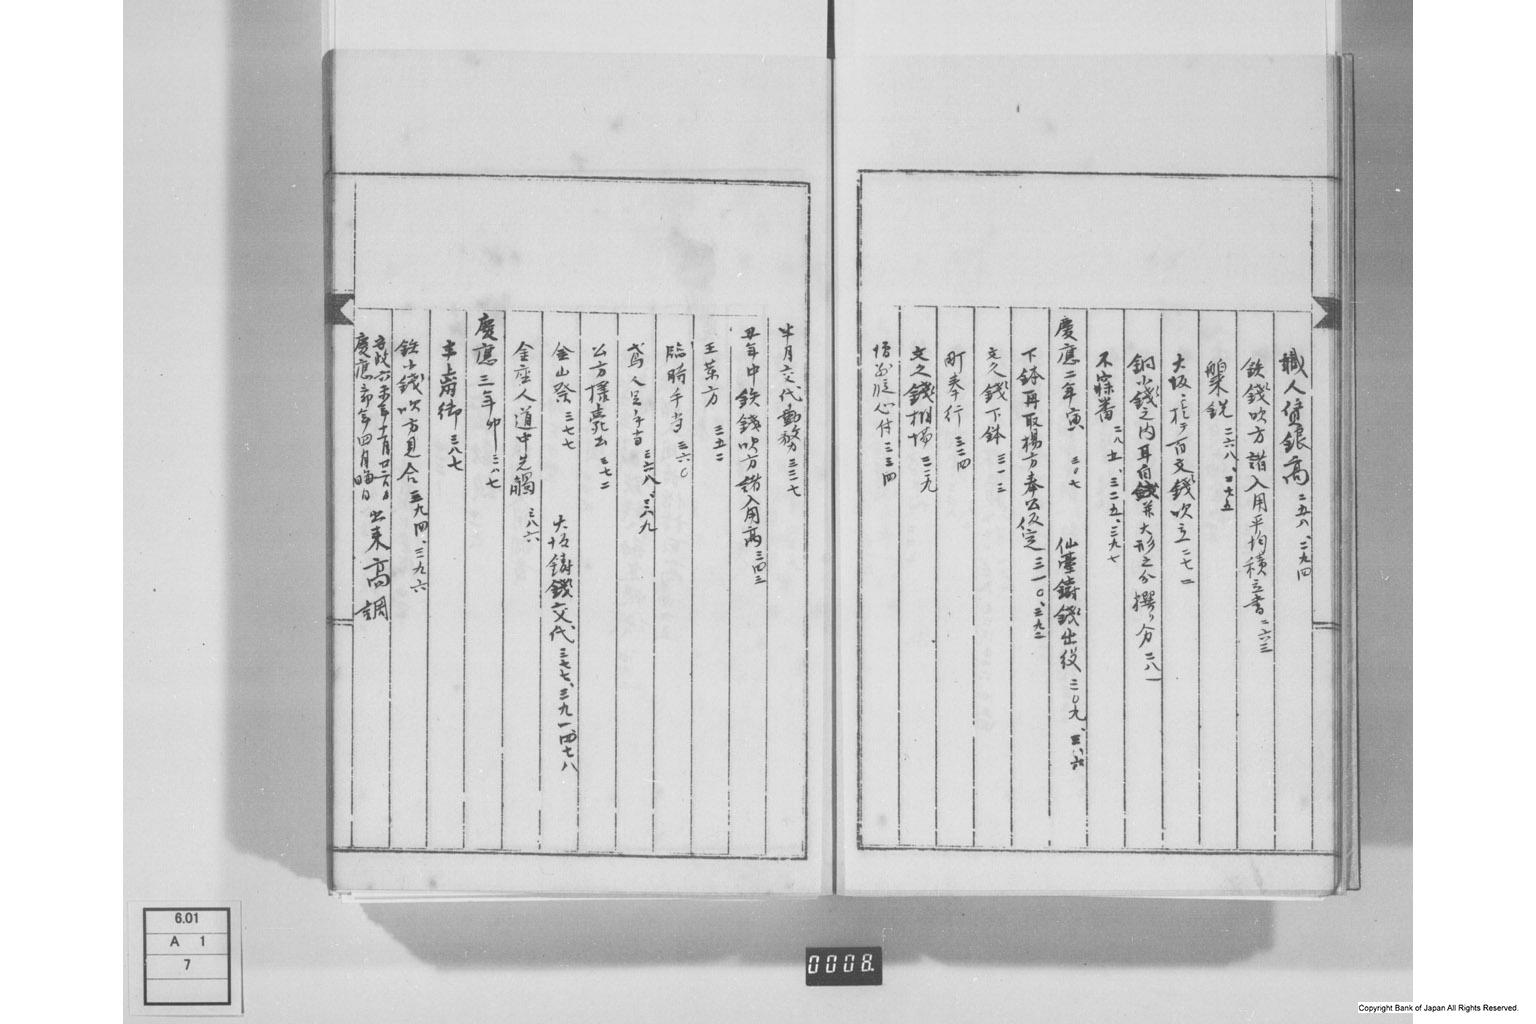 職人貸銀高 二五八、二九四
鉄錢吹方諸入用平均積立書 二六三
船來銑 二六八、
大坂 百文錢吹立 二七一
銅小錢之内耳白錢并大形之分撰り分 二八一
不寐番 三二五、三九七
慶應二年寅 三〇七 仙臺鑄錢出役 三〇九、
下鉢再取揚方奉公仮定 三一〇、三九二
文久錢下鉢 三一三
町奉行 三二四
文久錢相場 三二九
心付 三三四
半月交代勤務 三三七
丑年中鉄錢吹方諸入用高 三四三
玉薬方 三五二
臨時手当 三六〇
鳶人足手当 三六八、三六九
公方様薨去 三七二
金山祭 三七七 大坂鑄錢交代 三七七、三九一、四七八
金座人道中先觸 三八六
慶應三年卯 三八七
半肩衝 三八七
鉄小錢吹方見合 三九四、三九六
安政六未年十一月廿六日
慶應三卯年四月晦日 出来高調
6.01
A 1
7
0008.
Copyright Bank of Japan All Rights Reserved.